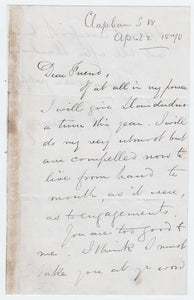 Clapham S.W.
April 2 1870
Dear Friend,
If at all in my power
I will give Llandudno
a turn this year. I will
do my very utmost but
are compelled now to
live from hand to
mouth, as it were,
as to engagements.
You are too good to
me. I think I must
take you at yr word